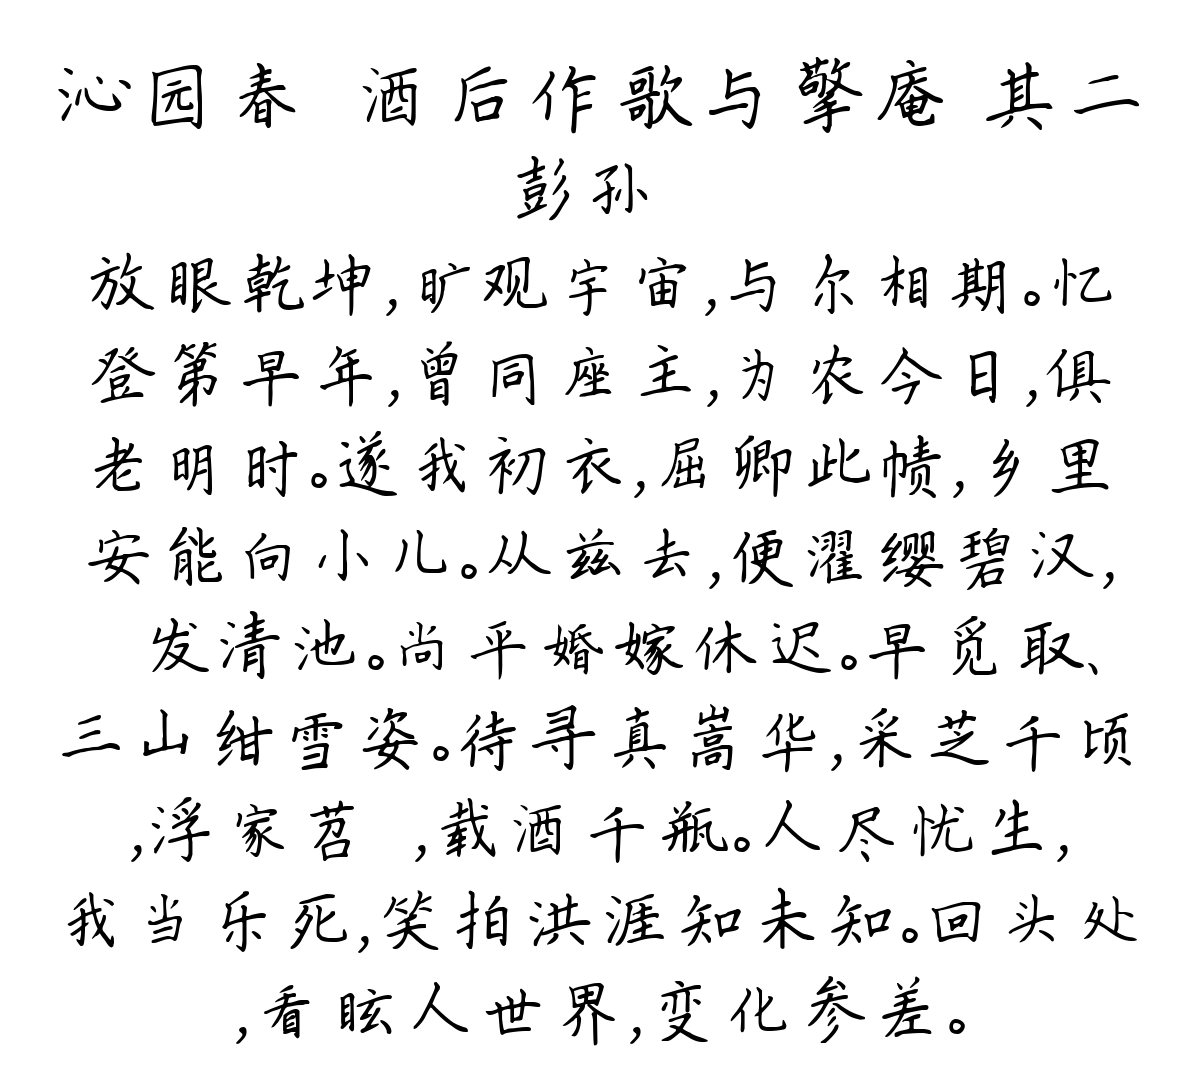 沁园春 酒后作歌与擎庵 其二
彭孙
放眼乾坤,旷观宇宙,与尔相期。忆
登第早年,曾同座主,为农今日,俱
老明时。遂我初衣,屈卿此帻,乡里
安能向小儿。从兹去,便濯缨碧汉,
发清池。尚平婚嫁休迟。早觅取、
三山绀雪姿。待寻真嵩华,采芝千顷
,浮家苕 ,载酒千瓶。人尽忧生,
我当乐死,笑拍洪涯知未知。回头处
,看眩人世界,变化参差。